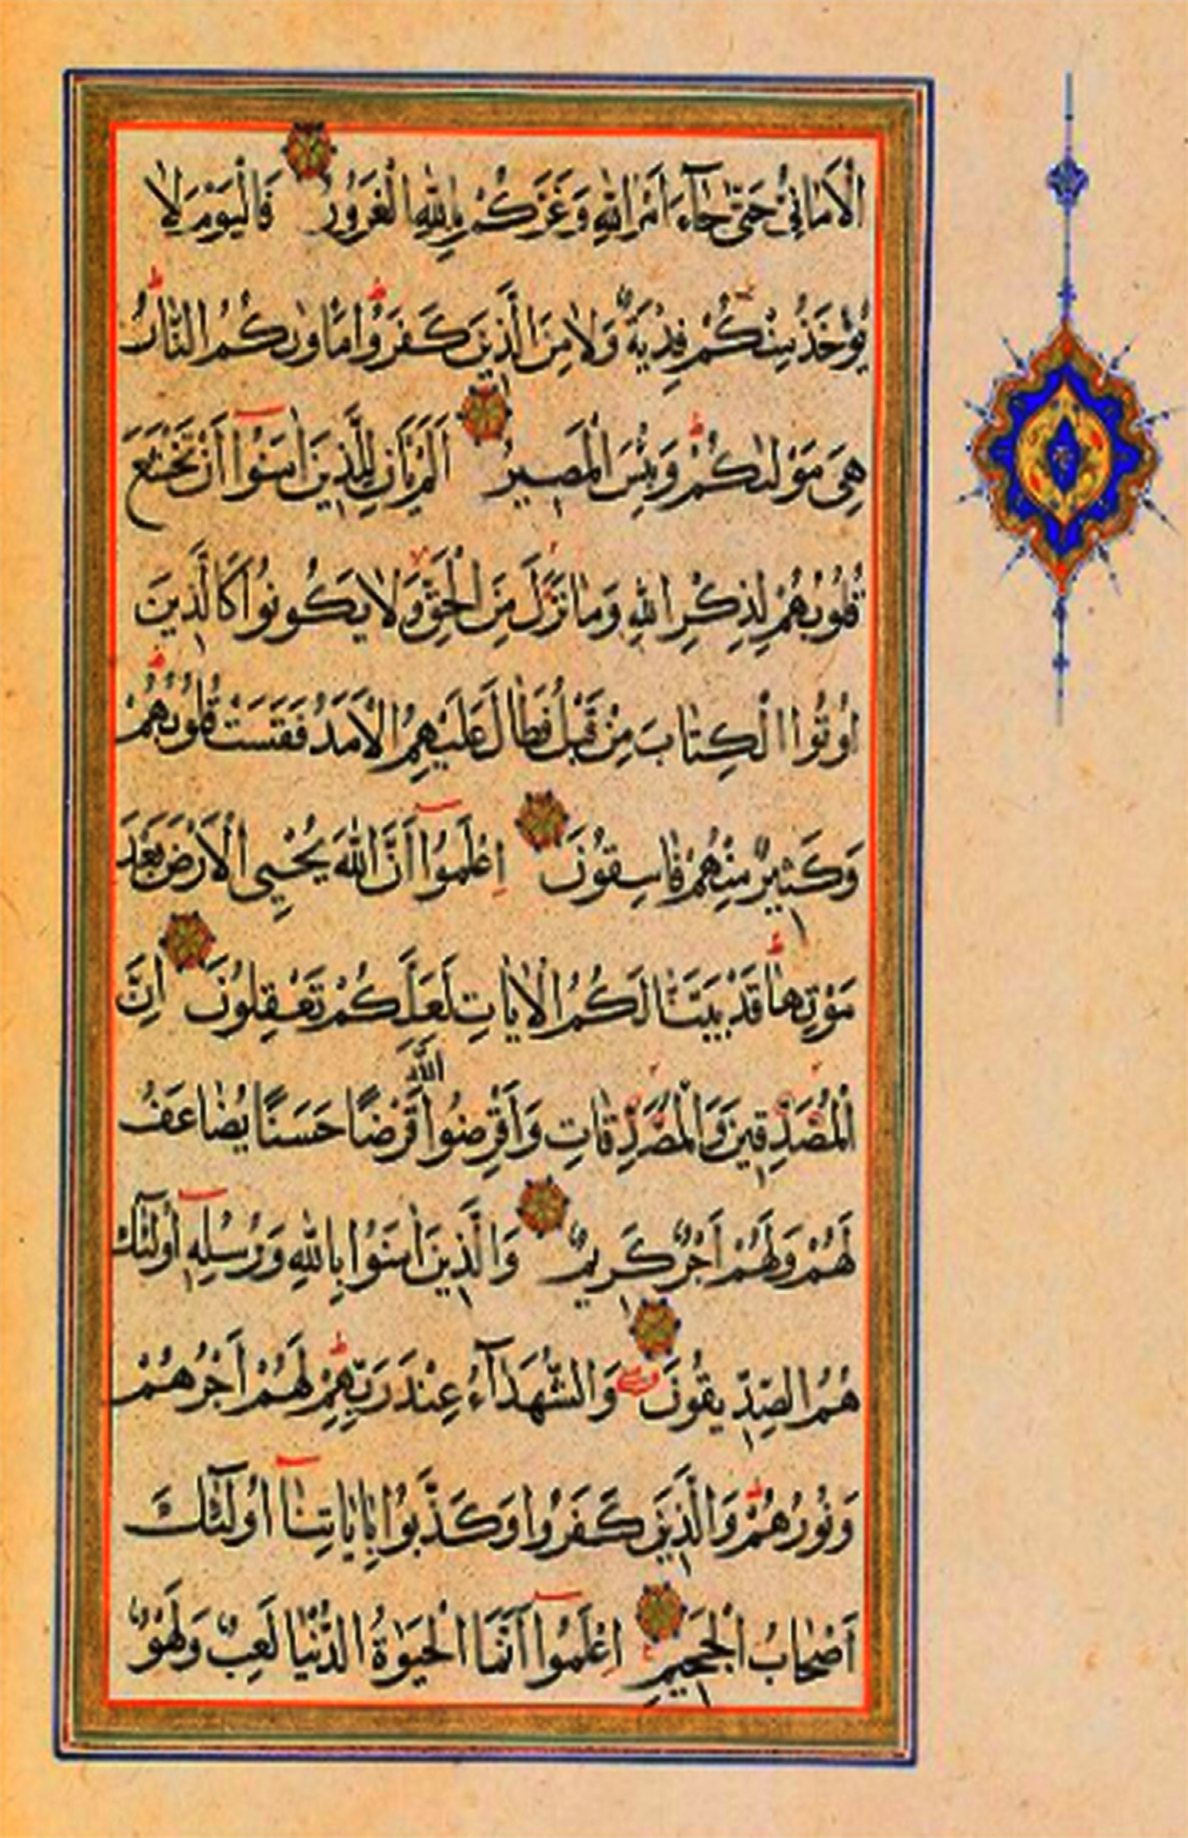 الْاَمَانِيُّ حَتّٰى جَآءَ اَمْرُ اللّٰهِ وَغَرَّكُمْ بِاللّٰهِ الْغَرُورُ فَالْيَوْمَ لَا
يُؤْخَذُ مِنْكُمْ فِدْيَةٌ وَلَا مِنَ الَّذِينَ كَفَرُوا مَاْوٰيكُمُ النَّارُ
هِىَ مَوْلٰيكُمْ وَبِئْسَ الْمَصِيرُ اَلَمْ يَاْنِ لِلَّذِينَ اٰمَنُوٓا اَنْ تَخْشَعَ
قُلُوبُهُمْ لِذِكْرِ اللّٰهِ وَمَا نَزَلَ مِنَ الْحَقِّ وَلَا يَكُونُوا كَالَّذِينَ
اُوتُوا الْكِتَابَ مِنْ قَبْلُ فَطَالَ عَلَيْهِمُ الْاَمَدُ فَقَسَتْ قُلُوبُهُمْ
وَكَثِيرٌ مِنْهُمْ فَاسِقُونَ اِعْلَمُوٓا اَنَّ اللّٰهَ يُحْيِى الْاَرْضَ بَعْدَ
مَوْتِهَا قَدْ بَيَّنَّا لَكُمُ الْاٰيَاتِ لَعَلَّكُمْ تَعْقِلُونَ اِنَّ
الْمُصَّدِّقِينَ وَالْمُصَّدِّقَاتِ وَاَقْرَضُوا اللّٰهَ قَرْضًا حَسَنًا يُضَاعَفُ
لَهُمْ وَلَهُمْ اَجْرٌ كَرِيمٌ وَالَّذِينَ اٰمَنُوا بِاللّٰهِ وَرُسُلِهٖٓ اُولٰٓئِكَ
هُمُ الصِّدِّيقُونَ وَالشُّهَدَآءُ عِنْدَ رَبِّهِمْ لَهُمْ اَجْرُهُمْ
وَنُورُهُمْ وَالَّذِينَ كَفَرُوا وَكَذَّبُوا بِاٰيَاتِنَآ اُولٰٓئِكَ
اَصْحَابُ الْجَحِيمِ اِعْلَمُوٓا اَنَّمَا الْحَيٰوةُ الدُّنْيَا لَعِبٌ وَلَهْوٌ